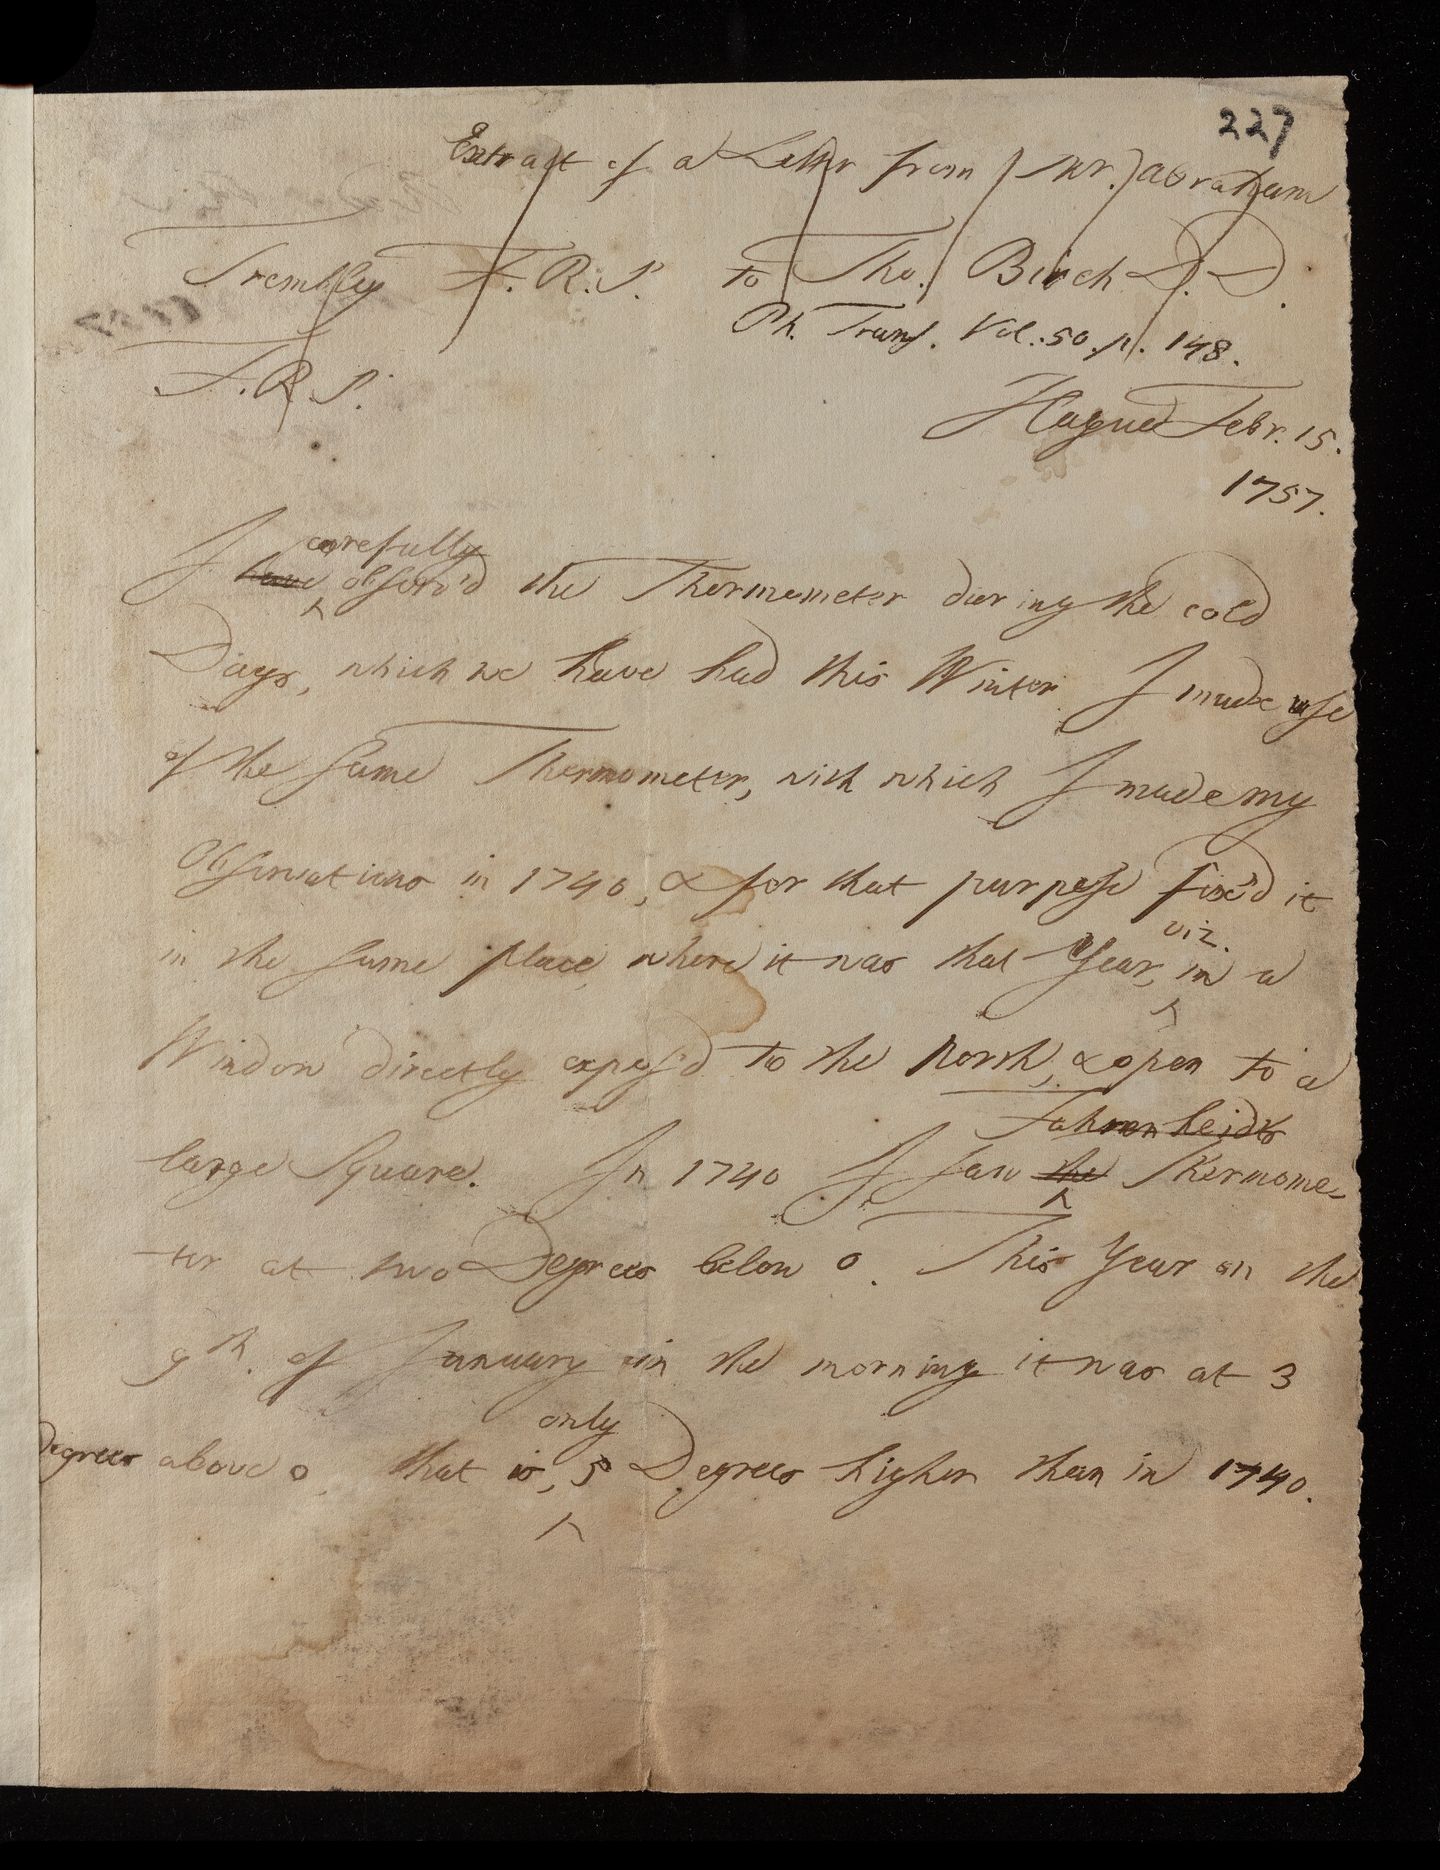 227
Extract of a Letter from Mr. Abraham
Trembley F.R.S. to Tho. Birch D.D.
Ph. Trans. Vol. 50. p. 148.
F.R.S.
Hague Febr. 15.
1757.
carefully
I have observ'd the Thermometer during the cold
Days, which we have had this Winter I made use
of the same Thermometer, with which I made my
Observations in 1740, & for that purpose fix'd it
viz.
in the same place, where it was that Year, in a
Window directly expos'd to the North, & open to a
Fahrenheidts
large Square. In 1740 I saw the Thermome-
ter at two Degrees below 0. This Year on the
9th. of January in the morning it was at 3
only
Degrees above 0 that is, 5 Degrees higher than in 1740.